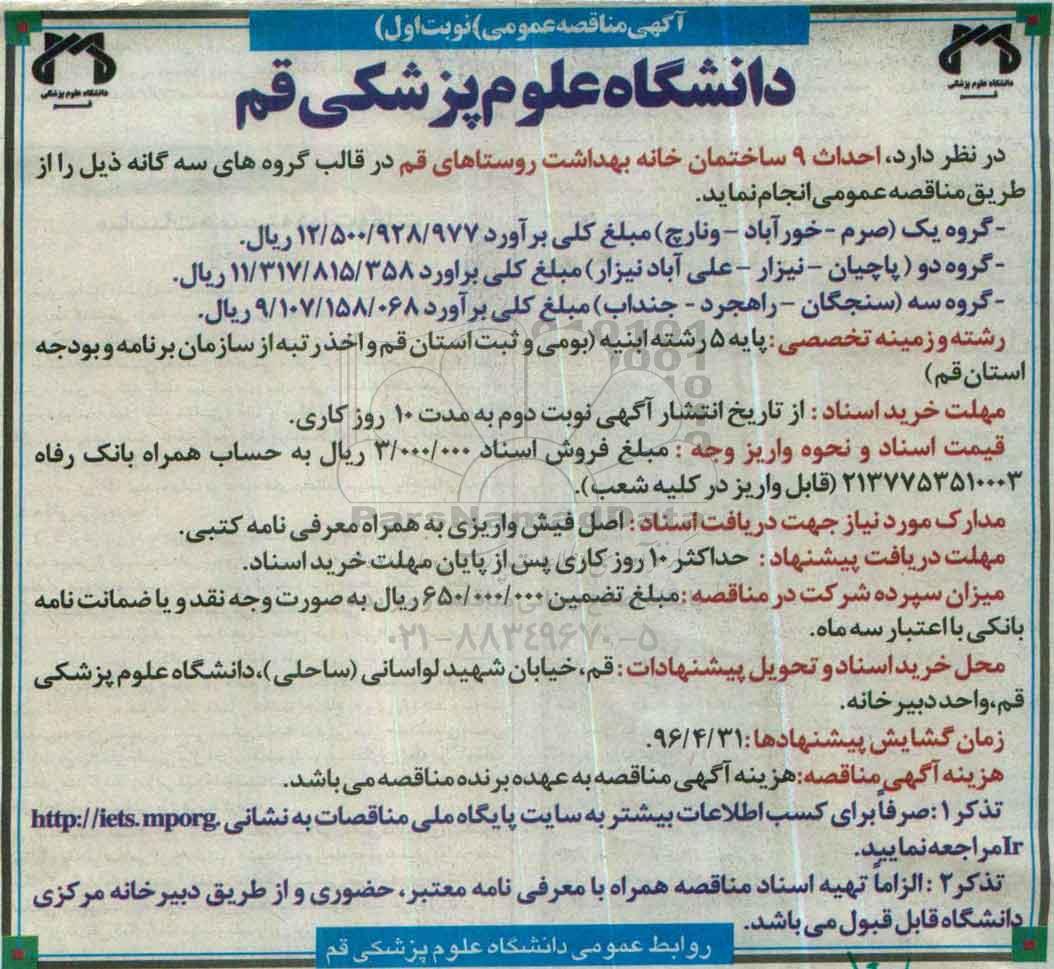 آگهی مناقصه عمومی (نوبت اول)
دانشگاه علوم پزشکی قم
دانشگاه علوم پزشکی
قم
دانشگاه علوم پزشکی
قم
در نظر دارد، احداث ۹ ساختمان خانه بهداشت روستاهای قم در قالب گروه های سه گانه ذیل را از
طریق مناقصه عمومی انجام نماید.
-گروه یک (صرم -خورآباد -ونارچ) مبلغ کلی برآورد ۱۲/۵۰۰/۹۲۸/۹۷۷ ریال.
-گروه دو ( پاچیان -نیزار -علی آباد نیزار) مبلغ کلی براورد ۱۱/۳۱۷/۸۱۵/۳۵۸ ریال.
-گروه سه (سنجگان -راهجرد - جنداب) مبلغ کلی برآورد ۹/۱۰۷/۱۵۸/۰۶۸ ریال.
رشته و زمینه تخصصی: پایه ۵ رشته ابنیه (بومی و ثبت استان قم و اخذ رتبه از سازمان برنامه و بودجه
استان قم)
مهلت خرید اسناد : از تاریخ انتشار آگهی نوبت دوم به مدت ۱۰ روز کاری.
قیمت اسناد و نحوه واریز وجه : مبلغ فروش اسناد ۳/۰۰۰/۰۰۰ ریال به حساب همراه بانک رفاه
۲۱۳۷۷۵۳۵۱۰۰۰۳ (قابل واریز در کلیه شعب).
مدارک مورد نیاز جهت دریافت اسناد : اصل فیش واریزی به همراه معرفی نامه کتبی.
مهلت دریافت پیشنهاد : حداکثر ۱۰ روز کاری پس از پایان مهلت خرید اسناد.
میزان سپرده شرکت در مناقصه :مبلغ تضمین ۶۵۰/۰۰۰/۰۰۰ ریال به صورت وجه نقد و یا ضمانت نامه
بانکی با اعتبار سه ماه.
محل خرید اسناد و تحویل پیشنهادات : قم، خیابان شهید لواسانی (ساحلی)، دانشگاه علوم پزشکی
قم، واحد دبیرخانه.
زمان گشایش پیشنهادها :۹۶/۴/۳۱.
هزینه آگهی مناقصه: هزینه آگهی مناقصه به عهده برنده مناقصه می باشد.
تذکر ۱: صرفاً برای کسب اطلاعات بیشتر به سایت پایگاه ملی مناقصات به نشانی http://iets.mporg.
Ir مراجعه نمایید.
تذکر ۲ : الزاماً تهیه اسناد مناقصه همراه با معرفی نامه معتبر، حضوری و از طریق دبیرخانه مرکزی
دانشگاه قابل قبول می باشد.
روابط عمومی دانشگاه علوم پزشکی قم
ParsNamadData
۰۲۱-۸۸۳۴۹۶۷۰-۵